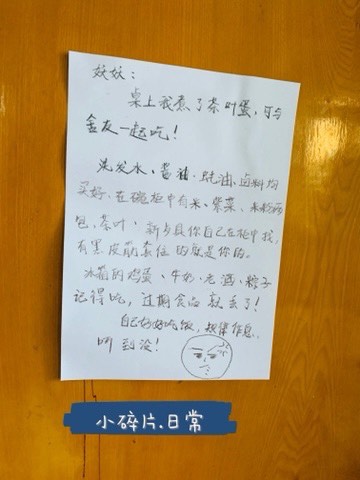 妏妏：
桌上我煮了茶叶蛋，可与
金友一起吃！
洗发水、酱油、蚝油、卤料均
买好，在碗柜中有米、紫菜、米粉两
包、茶叶、新 你自己在柜中找，
有黑皮筋套住的就是你的。
冰箱的鸡蛋、牛奶、老酒、粽子
记得吃，过期食品就丢了！
自己好好吃饭，规律作息。
听到没！
小碎片.日常